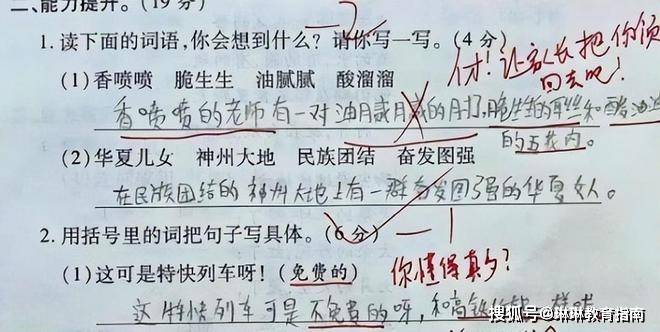 二、能力提升。(19分)
1.读下面的词语,你会想到什么?请你写一写。(4分)
(1)香喷喷 脆生生 油腻腻 酸溜溜
付!让家长把你领回去吧!
香喷喷的老师有一对油腻腻的肘子,脆生生的耳丝和酸溜溜
的五花肉。
(2)华夏儿女 神州大地 民族团结 奋发图强
在民族团结的神州大地上有一群奋发图强的华夏女人。
2.用括号里的词把句子写具体。(6分) -1
(1)这可是特快列车呀!(免费的)
你懂得真多?
这特快列车可是不免费的呀,和高铁
搜狐号@琳琳教育指南